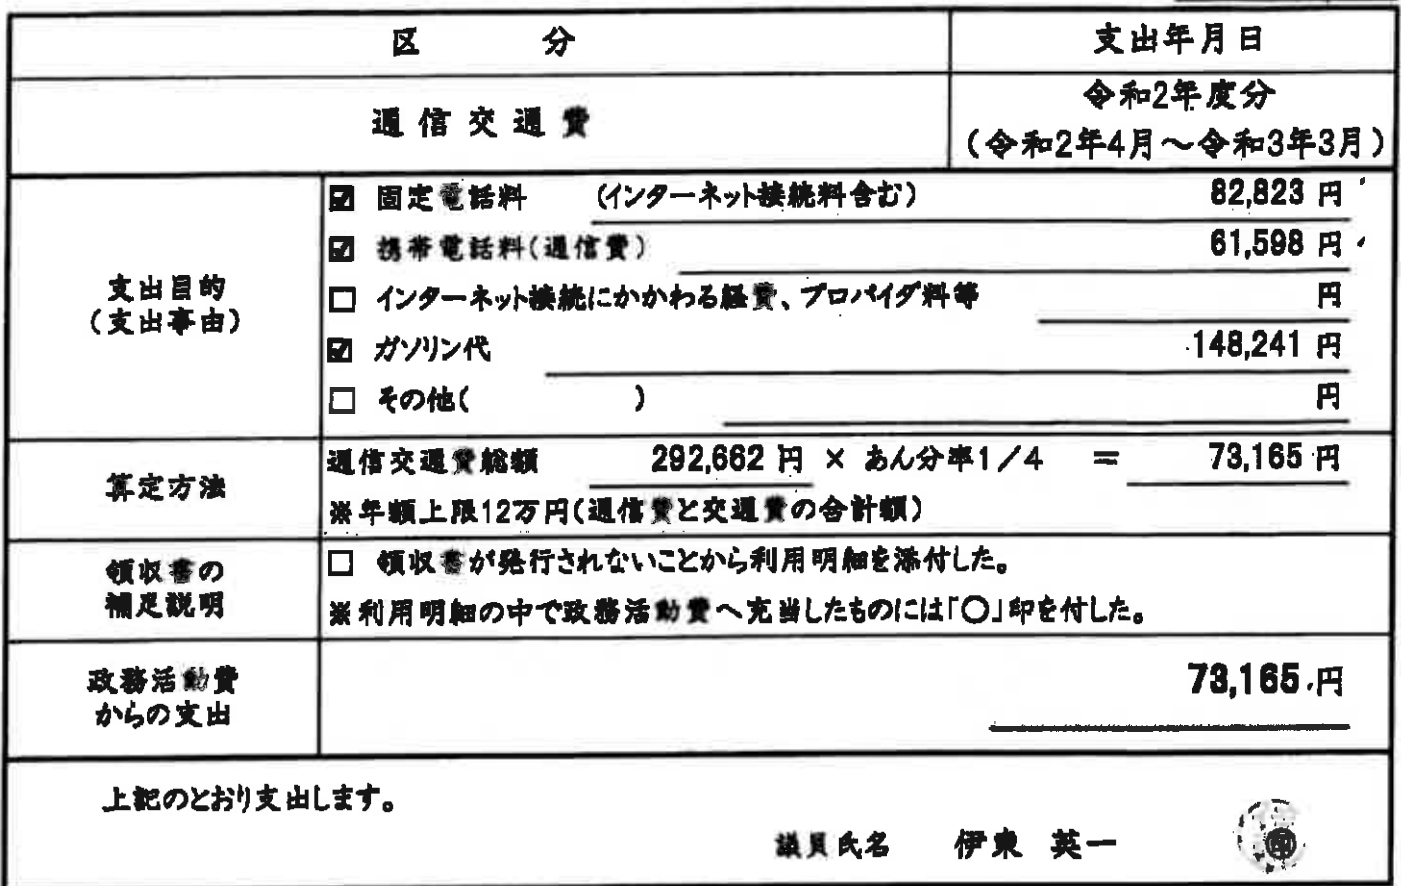 区 分 支出年月日
通信交通費 令和2年度分
(令和2年4月～令和3年3月)
支出目的
(支出事由)
☑ 固定電話料 (インターネット接続料含む) 82,823 円
☑ 携帯電話料(通信費) 61,598 円
□ インターネット接続にかかわる経費、プロバイダ料等 円
☑ ガソリン代 148,241 円
□ その他( ) 円
算定方法
通信交通費総額 292,662 円 × あん分率1/4 = 73,165 円
※年額上限12万円(通信費と交通費の合計額)
領収書の
補足説明
□ 領収書が発行されないことから利用明細を添付した。
※利用明細の中で政務活動費へ充当したものには「○」印を付した。
政務活動費
からの支出
73,165 円
上記のとおり支出します。
議員氏名 伊東 英一 印